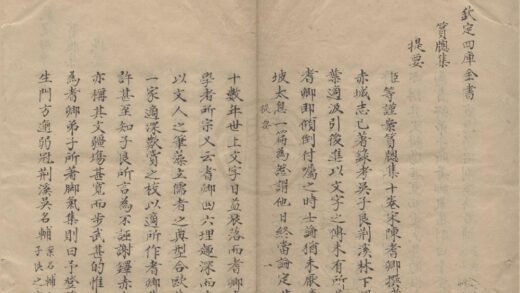 欽定四庫全書
篔牕集
提要
臣等謹案篔牕集十卷宋陳耆卿撰
赤城志已著録考吳子良荆溪林下
葉適汲引後進以文字之傳未有所
耆卿即傾倒付囑之時士論猶未厭
坡太息一篇為然謂他日終當論定
提要 一
十數年世上文字日益衰落而耆卿
學者所宗又云耆卿四六理趣深而
以文人之筆藻立儒者之典型合歐
一家適深歎賞之故以適所作耆卿
許甚至知子良所言為不誣謝鐸赤
亦稱其文疆場甚寛而步武甚的惟
為耆卿弟子所著脚氣集則曰予登
生門方逾弱冠荆溪吳名輔
案名輔
子良之